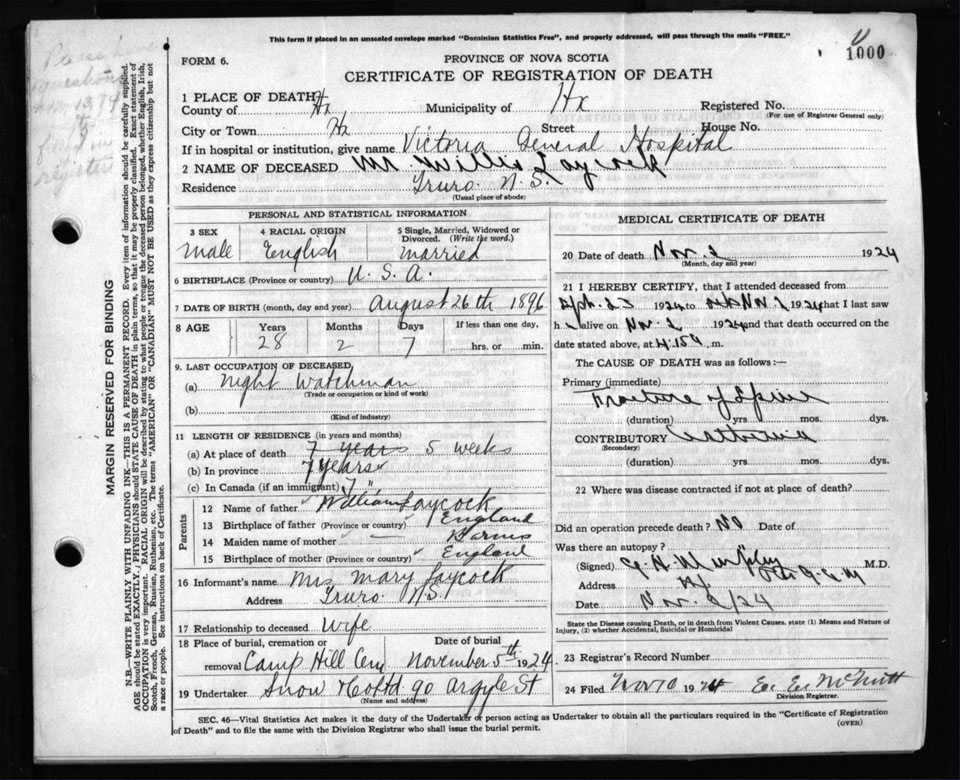 This form if placed in an unsealed envelope marked "Dominion Statistics Free", and properly addressed, will pass through the mails "FREE."
1000
FORM 6.
PROVINCE OF NOVA SCOTIA
CERTIFICATE OF REGISTRATION OF DEATH
1 PLACE OF DEATH
County of Hx Municipality of Hx Registered No.
(For use of Registrar General only)
City or Town Hx Street House No.
If in hospital or institution, give name Victoria General Hospital
2 NAME OF DECEASED Mr Willis Laycock
Residence Truro N.S.
(Usual place of abode)
PERSONAL AND STATISTICAL INFORMATION
3 SEX 4 RACIAL ORIGIN 5 Single, Married, Widowed or Divorced. (Write the word.)
Male English Married
6 BIRTHPLACE (Province or country) U.S.A.
7 DATE OF BIRTH (month, day and year) August 26th 1896
8 AGE Years Months Days If less than one day,
28 2 7 ......hrs. or ......min.
9. LAST OCCUPATION OF DECEASED
(a) Night Watchman
(Trade or occupation or kind of work)
(b)
(Kind of industry)
11 LENGTH OF RESIDENCE (in years and months)
(a) At place of death 7 years 5 weeks
(b) In province 7 years
(c) In Canada (if an immigrant) 7 "
Parents
12 Name of father William Laycock
13 Birthplace of father (Province or country) England
14 Maiden name of mother
15 Birthplace of mother (Province or country) England
16 Informant's name Mrs Mary Laycock
Address Truro N.S.
17 Relationship to deceased Wife
18 Place of burial, cremation or removal Camp Hill Cem Date of burial November 5th 1924
19 Undertaker Snow & Co Ltd 90 Argyle St
(Name and address)
MEDICAL CERTIFICATE OF DEATH
20 Date of death Nov. 2 1924
(Month, day and year)
21 I HEREBY CERTIFY, that I attended deceased from
1924 to Nov. 2 1924 that I last saw
h alive on Nov. 2 1924 and that death occurred on
date stated above, at 4.15 a .m.
The CAUSE OF DEATH was as follows:—
Primary (immediate)
Fracture of Spine
(duration) yrs mos. dys.
CONTRIBUTORY
(Secondary)
(duration) yrs. mos. dys.
22 Where was disease contracted if not at place of death?
Did an operation precede death? No Date of
Was there an autopsy?
(Signed) Murphy M.D.
Address Hx
Date Nov. 2/24
State the Disease causing Death, or in death from Violent Causes, state (1) Means and Nature of Injury, (2) whether Accidental, Suicidal or Homicidal
23 Registrar's Record Number
24 Filed Nov 10 1924 E. E. McNutt
Division Registrar.
SEC. 46—Vital Statistics Act makes it the duty of the Undertaker or person acting as Undertaker to obtain all the particulars required in the "Certificate of Registration of Death" and to file the same with the Division Registrar who shall issue the burial permit.
(OVER)
MARGIN RESERVED FOR BINDING
N.B.—WRITE PLAINLY WITH UNFADING INK—THIS IS A PERMANENT RECORD. Every item of information should be carefully supplied.
AGE should be stated EXACTLY. PHYSICIANS should STATE CAUSE OF DEATH in plain terms, so that it may be properly classified. Exact statement of
OCCUPATION is very important. RACIAL ORIGIN will be described by stating to what people or tongue the deceased person belonged, whether English, Irish,
Scotch, French, German, Russian, Ruthenian, etc. The terms "AMERICAN" OR "CANADIAN" MUST NOT BE USED as they express citizenship but not
a race or people. See instructions on back of Certificate.